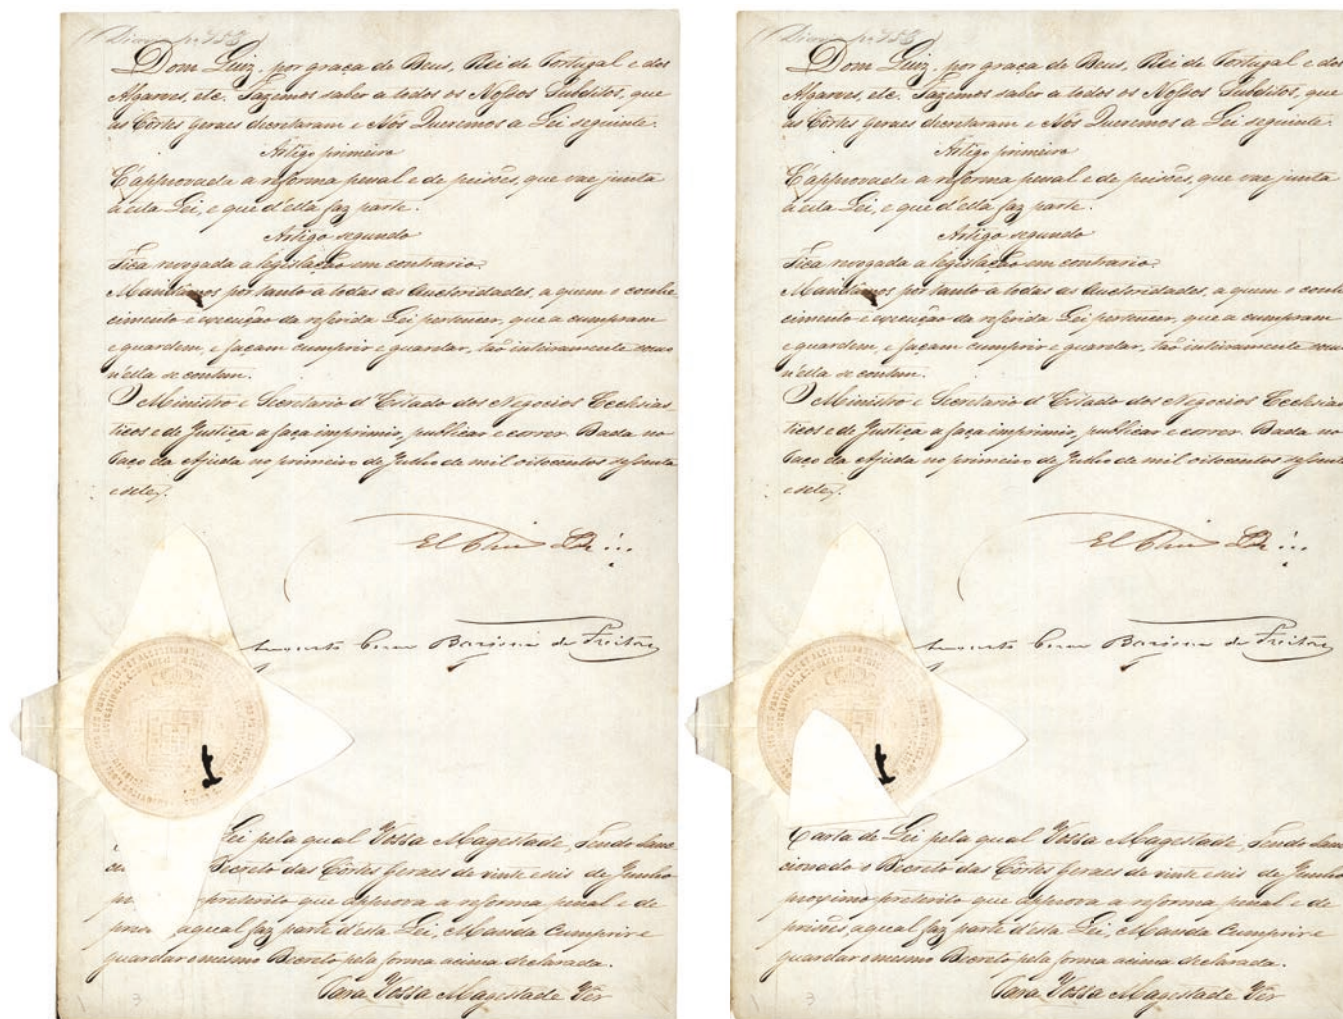 (Diario nº 153)
Dom Luiz, por graça de Deus, Rei de Portugal e dos
Algarves, etc. Fazemos saber a todos os Nossos Subditos, que
as Côrtes Geraes decretaram e Nós Queremos a Lei seguinte:
Artigo primeiro
É approvada a reforma penal e de prisões, que vae junta
a esta Lei, e que d'ella faz parte.
Artigo segundo
Fica revogada a legislação em contrario.
Mandâmos por tanto a todas as Auctoridades, a quem o conhe-
cimento e execução da referida Lei pertencer, que a cumpram
e guardem, e façam cumprir e guardar, tão inteiramente como
n'ella se contem.
O Ministro e Secretario d'Estado dos Negocios Ecclesias-
ticos e de Justiça a faça imprimir, publicar e correr. Dada no
Paço da Ajuda no primeiro de Julho de mil oitocentos sessenta
e sete.
El Rei
Barjona de Freitas
Lei pela qual Vossa Magestade, Tendo Sanc-
Decreto das Côrtes Geraes de vinte e seis de Junho
preterito que approva a reforma penal e de
a qual faz parte d'esta Lei, Manda Cumprir e
guardar o mesmo Decreto pela forma acima declarada.
Para Vossa Magestade Ver
3
(Diario nº 153)
Dom Luiz, por graça de Deus, Rei de Portugal e dos
Algarves, etc. Fazemos saber a todos os Nossos Subditos, que
as Côrtes Geraes decretaram e Nós Queremos a Lei seguinte:
Artigo primeiro
É approvada a reforma penal e de prisões, que vae junta
a esta Lei, e que d'ella faz parte.
Artigo segundo
Fica revogada a legislação em contrario.
Mandâmos por tanto a todas as Auctoridades, a quem o conhe
cimento e execução da referida Lei pertencer, que a cumpram
e guardem, e façam cumprir e guardar, tão inteiramente como
n'ella se contem.
O Ministro e Secretario d'Estado dos Negocios Ecclesias
ticos e de Justiça a faça imprimir, publicar e correr. Dada no
Paço da Ajuda no primeiro de Julho de mil oitocentos sessenta
e sete.
El Rei
Barjona de Freitas
Carta de Lei pela qual Vossa Magestade, Tendo Sanc
cionado o Decreto das Côrtes Geraes de vinte e seis de Junho
proximo preterito que approva a reforma penal e de
prisões, a qual faz parte d'esta Lei, Manda Cumprir e
guardar o mesmo Decreto pela forma acima declarada.
Para Vossa Magestade Ver
3